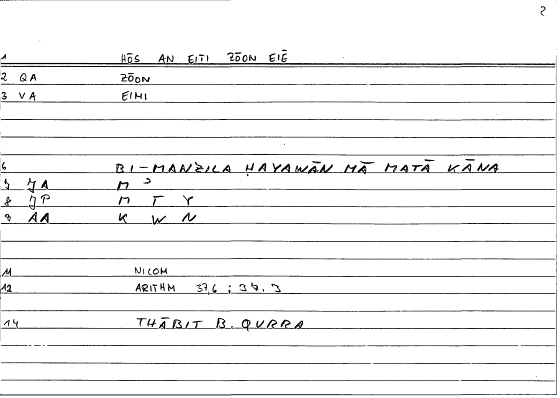 2
1 HŌS AN EITI ZŌON EIĒ
2 QA ZŌON
3 VA EIMI
6 BI-MANZILA ḤAYAWĀN MĀ MATĀ KĀNA
JA M
8 JP M T Y
9 AA K W N
11 NICOM
12 ARITHM 37,6 ; 37.3
14 THĀBIT B. QURRA